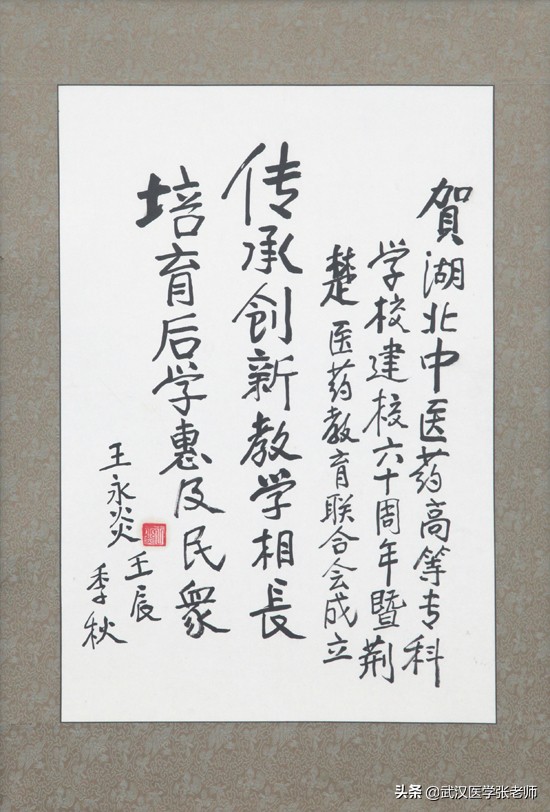 賀湖北中医药高等专科
学校建校六十周年暨荆
楚医药教育联合会成立
传承创新教学相長
培育后学惠及民衆
王永炎
壬辰
季秋
头条 @武汉医学张老师